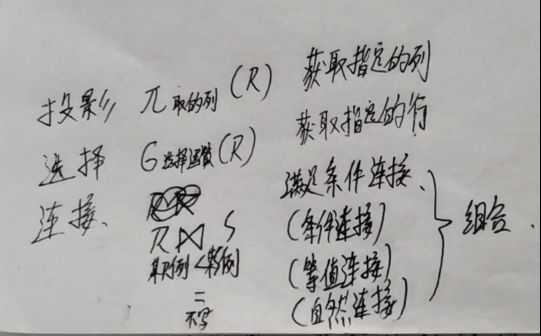 投影 π取的列(R) 获取指定的列
选择 G选择运算(R) 获取指定的行
连接、 满足条件连接、
R⋈S (条件连接) 组合.
(等值连接)
=
不写 (自然连接)